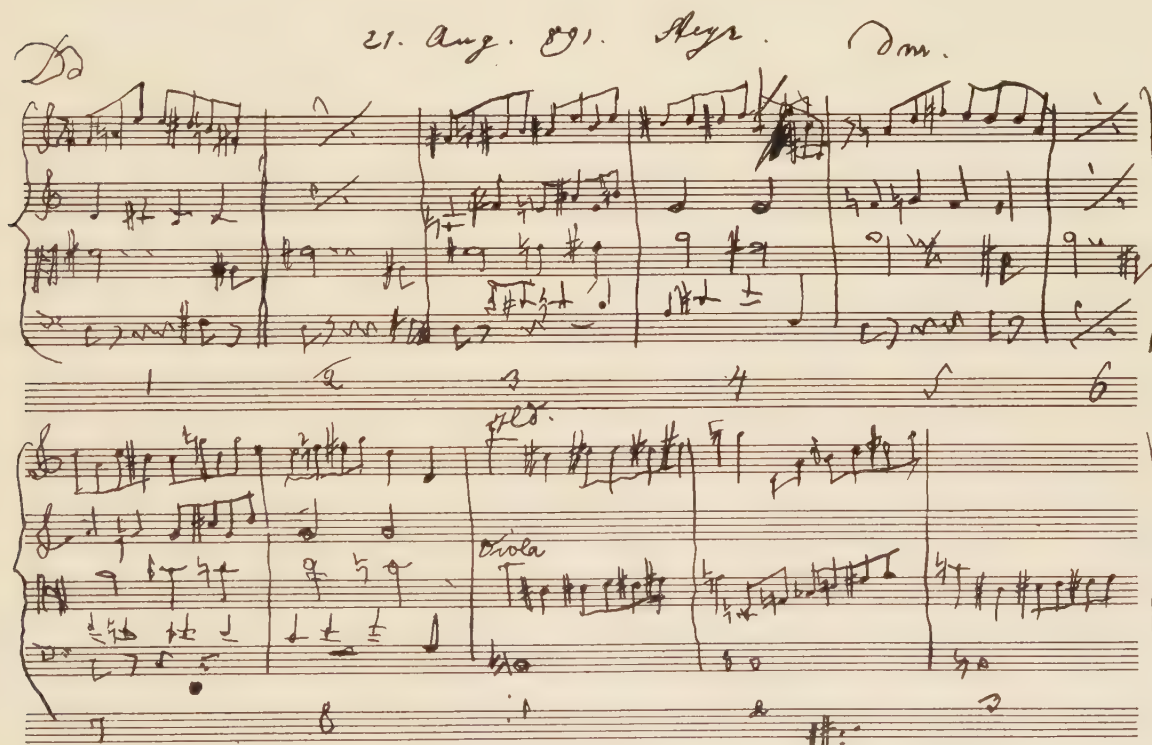 21. Aug. 891. Steyr.
1 2 3 4 5 6
Viola
7 8 1 2 3